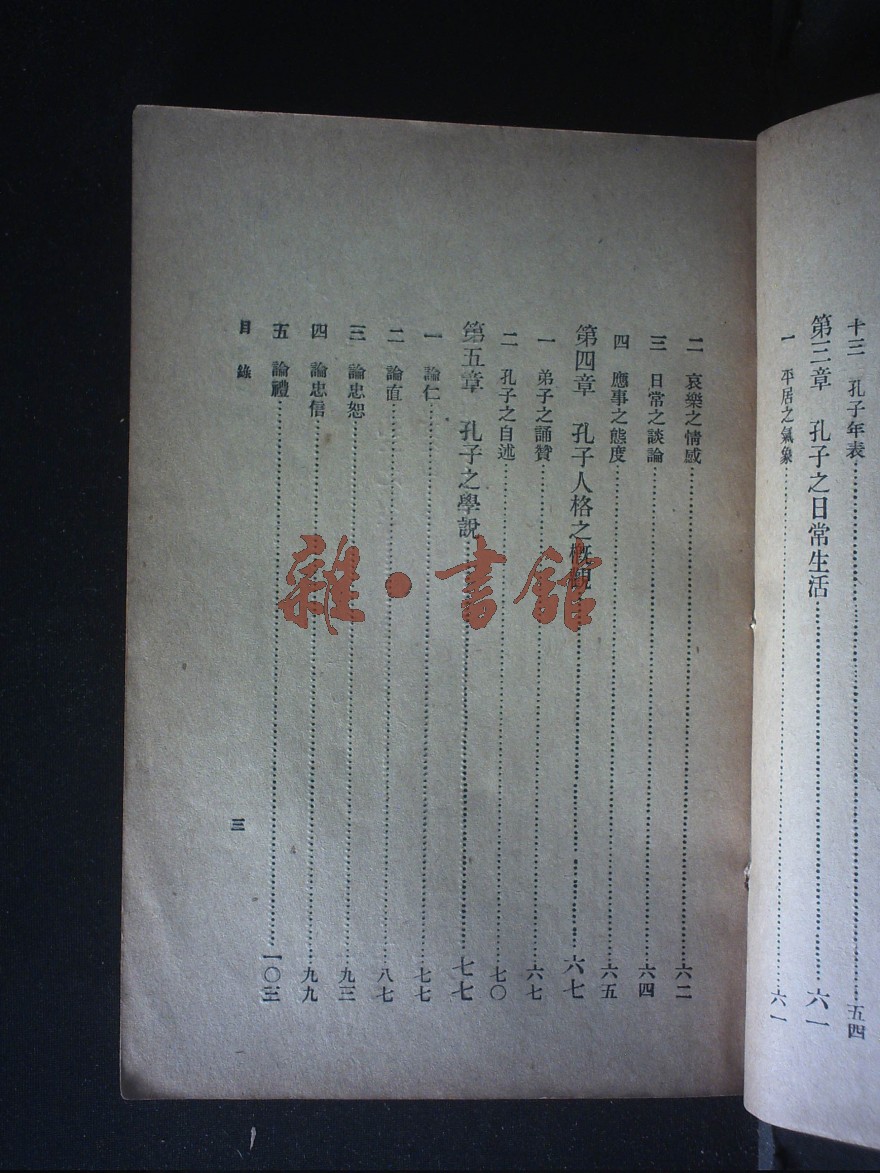 十三 孔子年表……五四
第三章 孔子之日常生活……六一
一 平居之氣象……六一
二 哀樂之情感……六二
三 日常之談論……六四
四 應事之態度……六五
第四章 孔子人格之概觀……六七
一 弟子之誦贊……六七
二 孔子之自述……七〇
第五章 孔子之學說……七七
一 論仁……七七
二 論直……八七
三 論忠恕……九三
四 論忠信……九九
五 論禮……一〇三
目錄
三
雜·書館